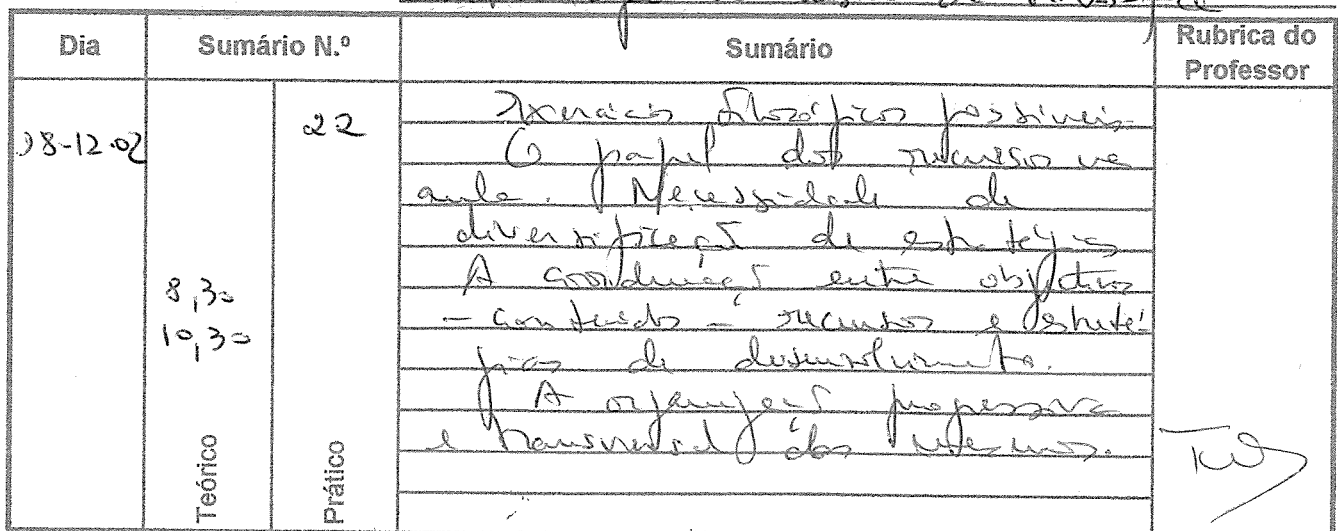 Dia Sumário N.º Sumário Rubrica do Professor
08-12-02 22
8,30
10,30
Teórico Prático
Exercícios filosóficos possíveis.
O papel dos recursos na
aula. Necessidade de
diversificação de estratégias
A coordenação entre objectivos
- conteúdos - recursos e estraté-
gias de desenvolvimento.
A organização progressiva
e transversal dos mesmos.